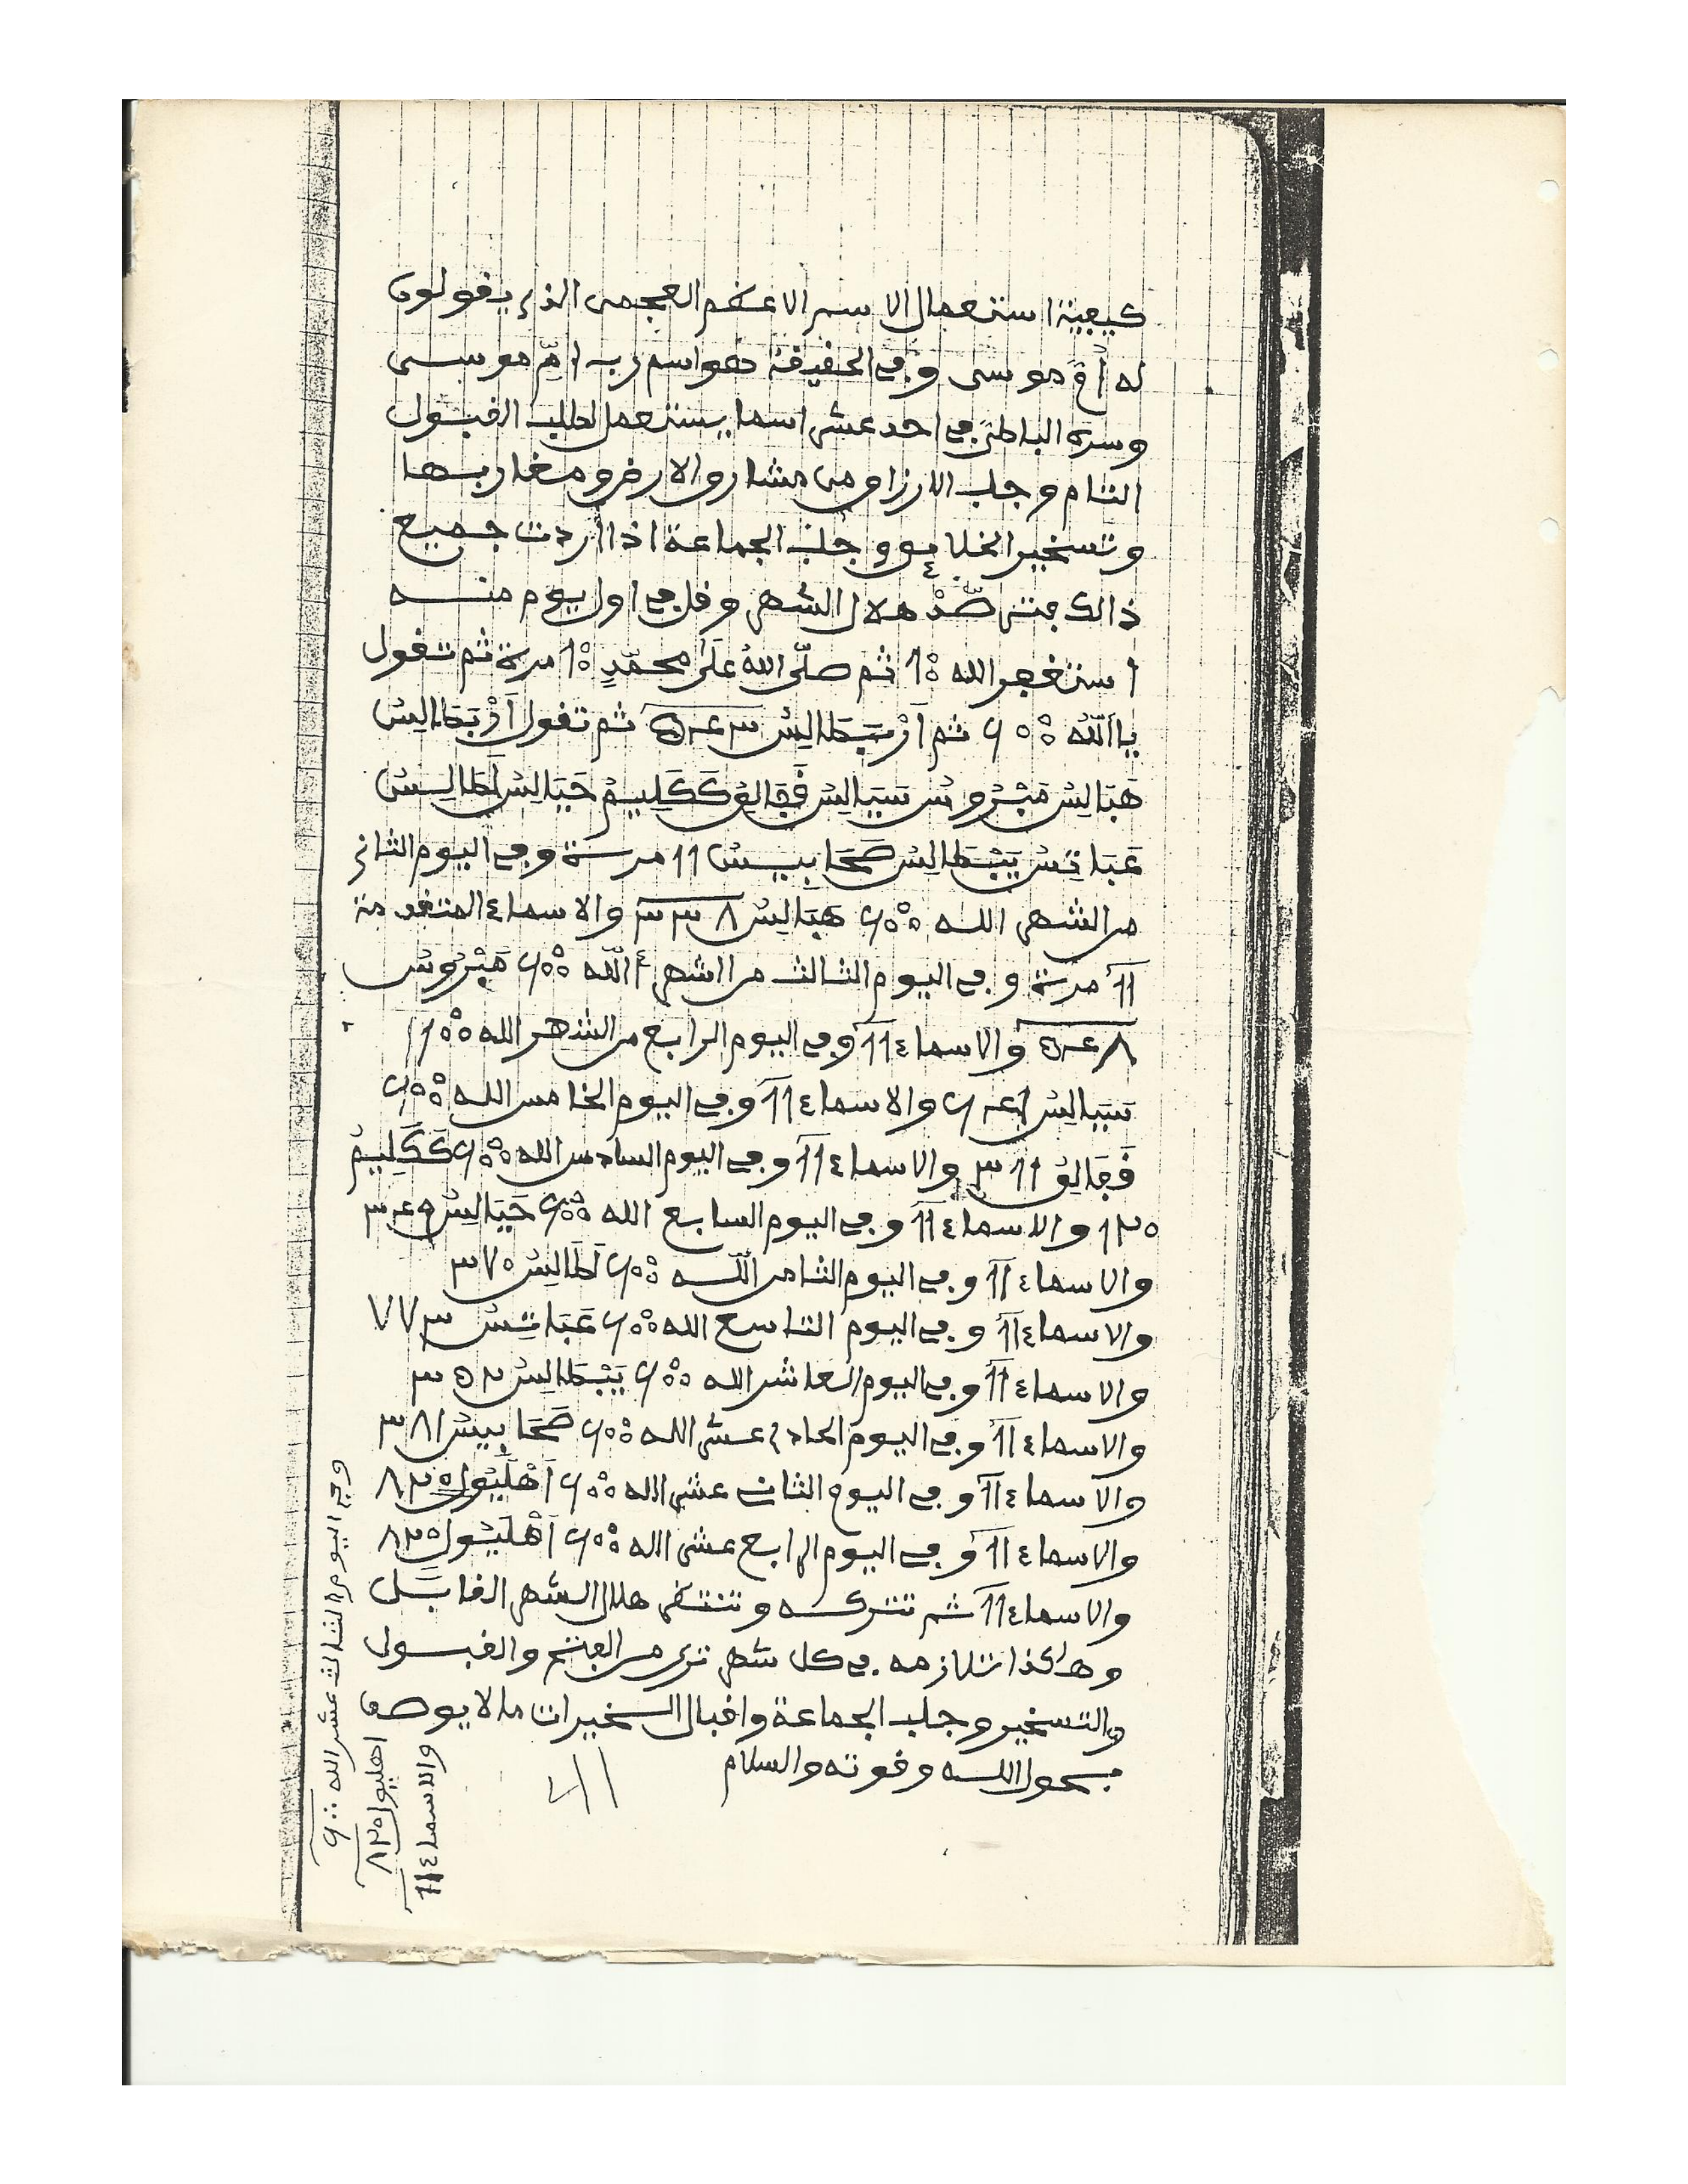 كيفية استعمال الاسم الاعظم العجمى الذى يقولون
له أمّ موسى وفى الحقيقة هو اسم رب امّ موسى
وسره الباطن فى احد عشر اسما يستعمل لطلب القبول
التام وجلب الارزاق من مشارق الارض ومغاربها
وتسخير الخلايق وجلب الجماعة اذا أردت جميع
ذالك فترصّدْ هلال الشهر وقل فى اول يوم منه
استغفر الله ١٠٠ ثم صلّى اللهُ علَى محمّدٍ ١٠٠ مرة ثم تقول
يا اَللّهُ ٦٠٠٠ ثم اَرْبَطَالِسْ ٣٤٥ ثم تقول اَرْبَطَالِسْ
هَبَالِسْ مَبْرُوسْ سَيَالِسْ فَقَالِقْ كَكَلِيمْ حَيَالِسْ لَطَالِسْ
عَبَاتِسْ يَبْطَالِسْ صَحَابِيسْ ١١ مرة وفى اليوم الثانى
من الشهر الله ٦٠٠٠ هَبَالِسْ ٣٣٨ والاسماء المتقدمة
١١ مرة وفى اليوم الثالث من الشهر أللّه ٦٠٠٠ مَبْرُوسْ
٥٤٨ والاسماء ١١ وفى اليوم الرابع من الشهر الله ٦٠٠٠
سَيَالِسْ والاسماء ١١ وفى اليوم الخامس الله ٦٠٠٠
فَقَالِقْ ٣١١ والاسماء ١١ وفى اليوم السادس الله ٦٠٠٠ كَكَلِيمْ
١٢٠ والاسماء ١١ وفى اليوم السابع الله ٦٠٠٠ حَيَالِسْ
والاسماء ١١ وفى اليوم الثامن اللّه ٦٠٠٠ لَطَالِسْ ٣٧٠
والاسماء ١١ وفى اليوم التاسع الله ٦٠٠٠ عَبَاتِسْ ٧٧٣
والاسماء ١١ وفى اليوم العاشر الله ٦٠٠٠ يَبْطَالِسْ ٣٥٢
والاسماء ١١ وفى اليوم الحادى عشر الله ٦٠٠٠ صَحَابِيسْ ٣٨١
والاسماء ١١ وفى اليوم الثانى عشر الله ٦٠٠٠ اَهْلَيُولْ ٨٢٥
والاسماء ١١ وفى اليوم الرابع عشر الله ٦٠٠٠ اَهْلَيُولْ ٨٢٥
والاسماء ١١ ثم تتركه وتنتظر هلال الشهر القابل
وهاكذا تلازمه فى كل شهر ترى من الفتح والقبول
والتسخير وجلب الجماعة واقبال السخيرات ما لا يوصف
بحول الله وقوته والسلام
وفى اليوم الثالث عشر الله ٦٠٠٠
اهليول ٨٢٥
والاسماء ١١